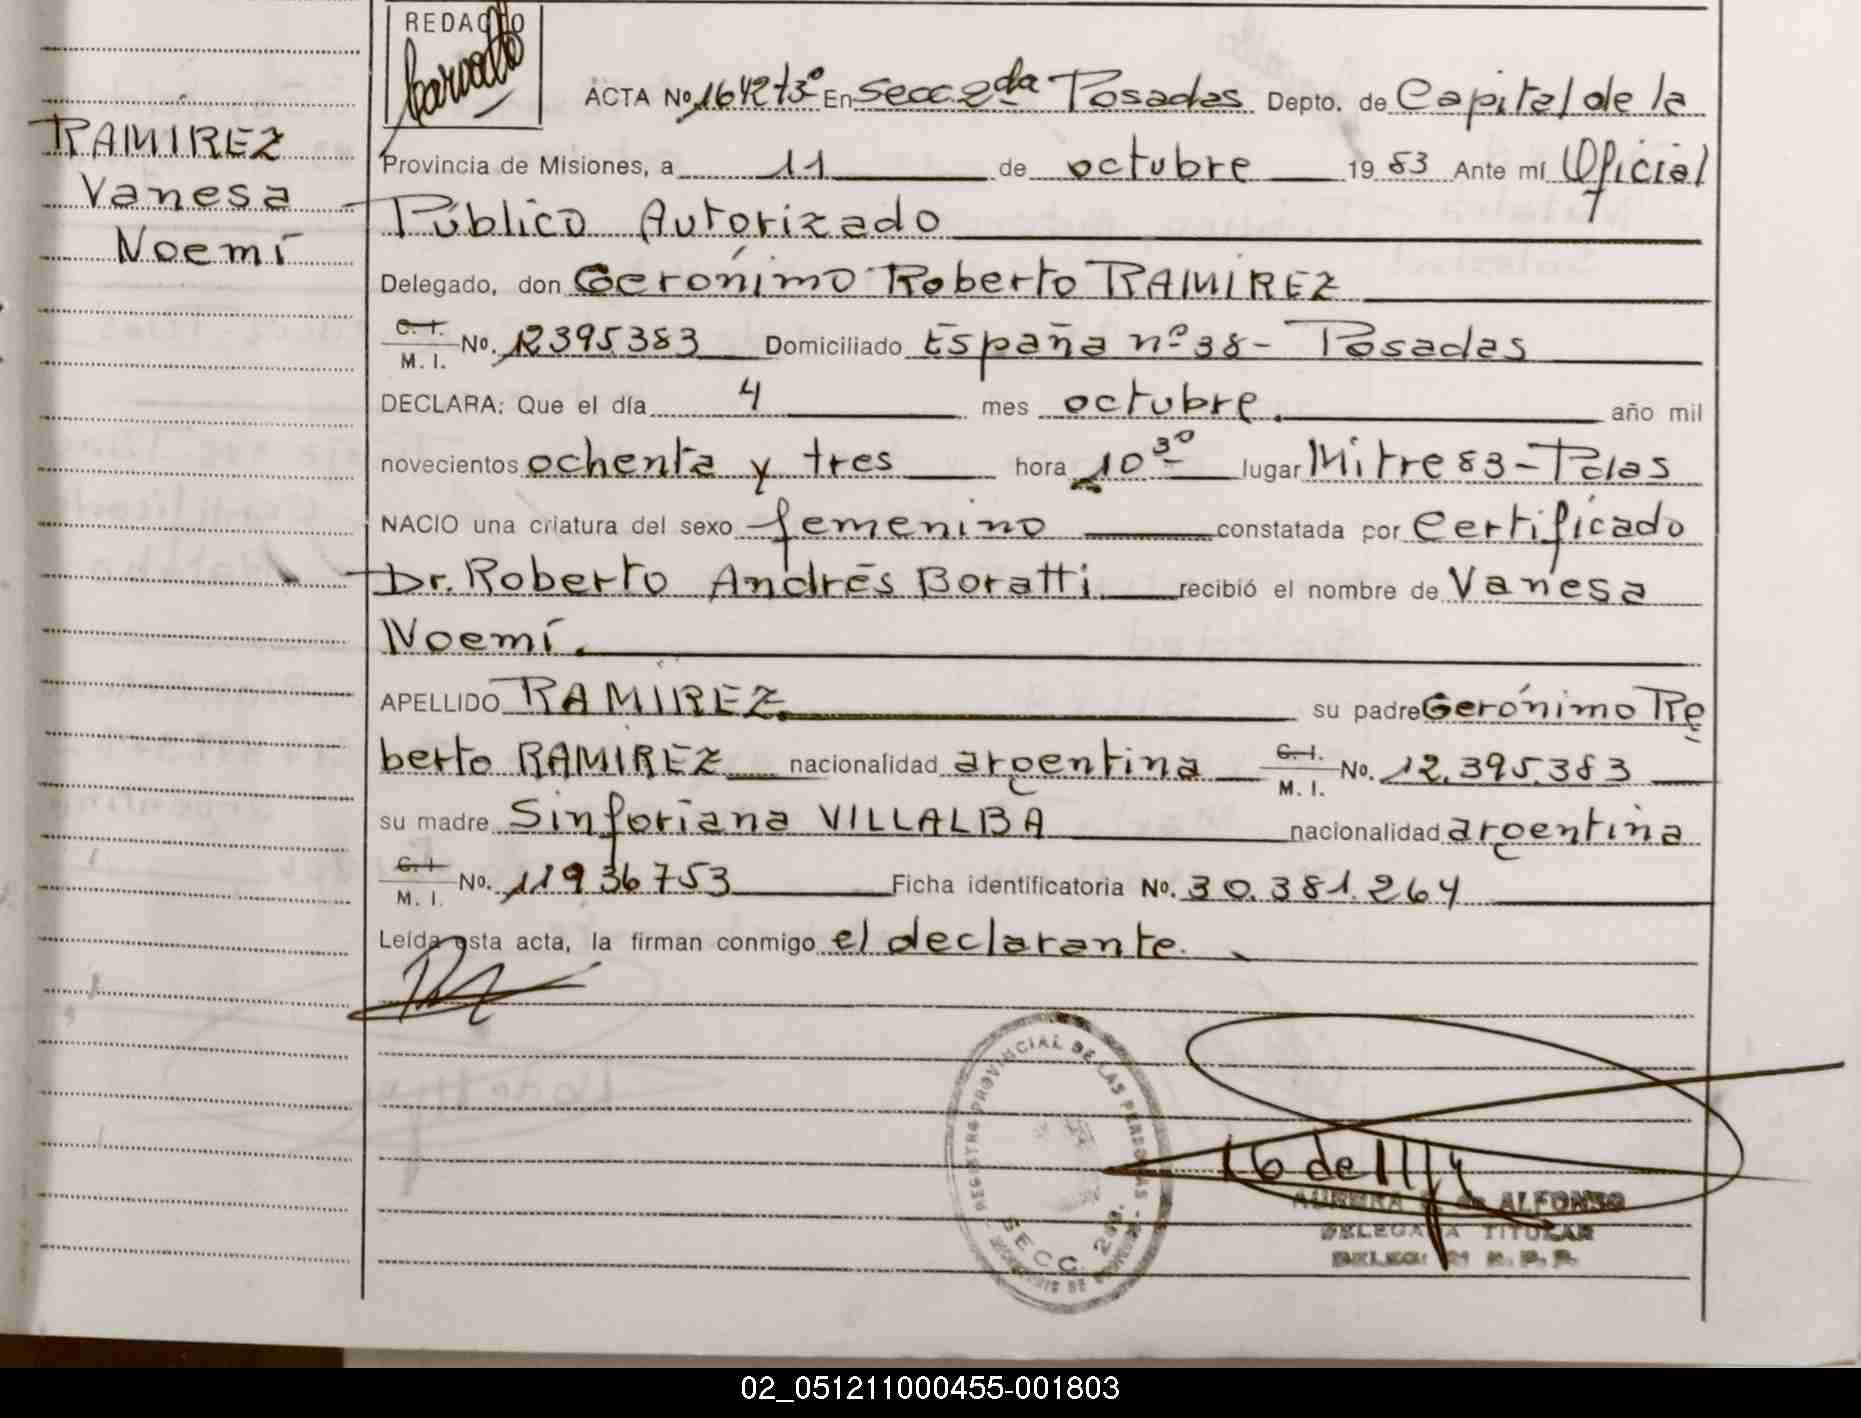 REDACTO
ACTA No 1642 t3º En Secc 2da Posadas Depto. de Capital de la
RAMIREZ
Provincia de Misiones, a 11 de octubre 1983 Ante mí Oficial
Vanesa
Público Autorizado
Noemí
Delegado, don Gerónimo Roberto RAMIREZ
C. I. M. I. No. 12395383 Domiciliado España nº 38 - Posadas
DECLARA: Que el día 4 mes octubre. año mil
novecientos ochenta y tres hora 10 3º lugar Mitre 83 - Pdas
NACIO una criatura del sexo femenino constatada por Certificado
Dr. Roberto Andrés Boratti recibió el nombre de Vanesa
Noemí.
APELLIDO RAMIREZ su padre Gerónimo Ro
berto RAMIREZ nacionalidad argentina C. I. M. I. No. 12.395.383
su madre Sinforiana VILLALBA nacionalidad argentina
C. I. M. I. No. 11936753 Ficha identificatoria No. 30.381.264
Leída esta acta, la firman conmigo el declarante.
REGISTRO PROVINCIAL DE LAS PERSONAS
SECC. 2da.
ALFONSO
DELEGADA TITULAR
02_051211000455-001803